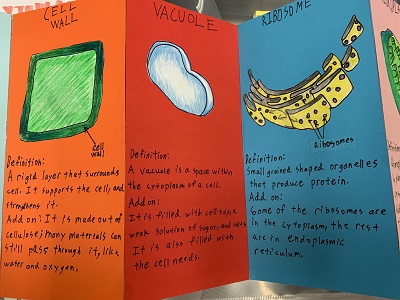 CELL
WALL
cell
wall
Definition:
A rigid layer that surrounds
cell. It supports the cell, and
strengthens it.
Add on: It is made out of
cellulose; many materials can
still pass through it, like
water and oxygen.
VACUOLE
Definition:
A vacuole is a space within
the cytoplasm of a cell.
Add on:
It is filled with cell sap, a
weak solution of sugar, and
It is also filled with
the cell needs.
RIBOSOME
Ribosomes
Definition:
Small grained shaped organelles
that produce protein.
Add on:
Some of the ribosomes are
in the cytoplasm, the rest
are in endoplasmic
reticulum.